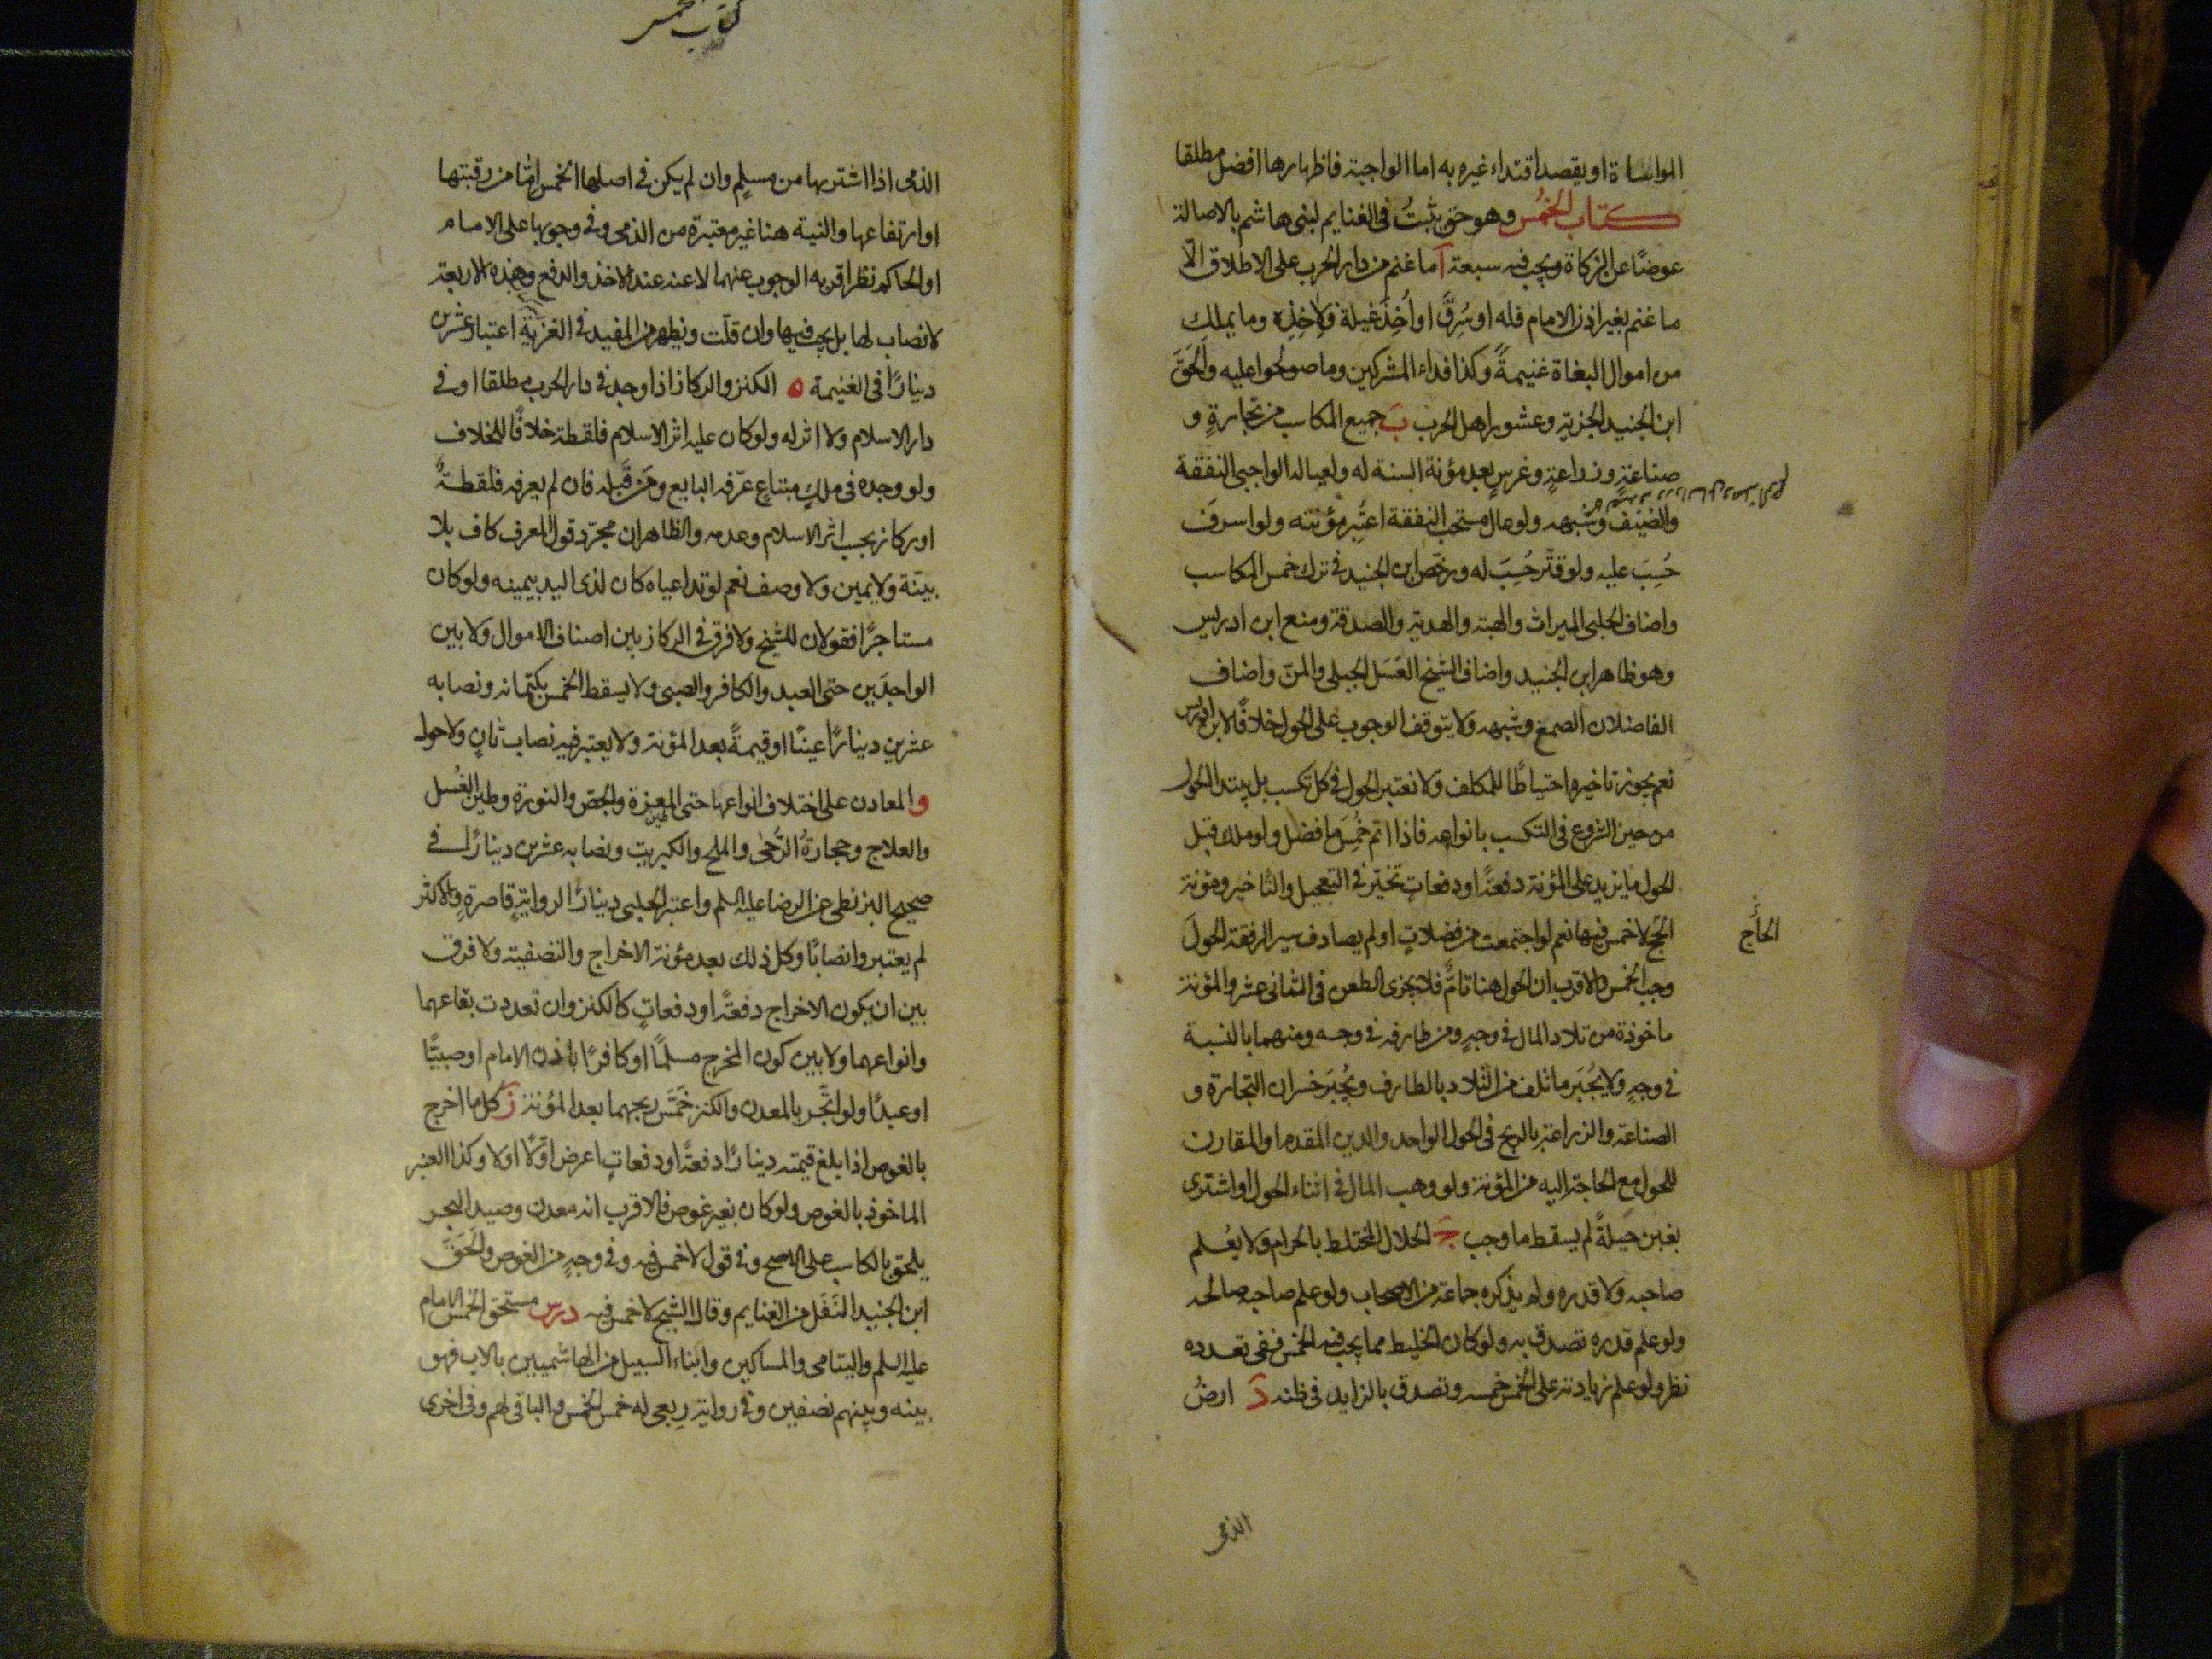 المواساة او يقصد اقتداء غيره به اما الواجبة فاظهارها افضل مطلقا
كتاب الخُمس وهو حق يثبتُ فى الغنايم لبنى هاشم بالاصالة
عوضًا عن الزكاة ويجب فى سبعة آ ما غنم من دار الحرب على الاطلاق الّا
ما غنم بغير اذن الامام فله او سُرِقَ او اُخِذَ غيلة فلاخِذِه وما يملك
من اموال البغاة غنيمةً وكذا فداء المشركين وما صولحوا عليه والحَقَ
ابن الجنيد الجزية وعشور اهل الحرب بَ جميع المكاسب من تجارةٍ و
صناعةٍ وزراعةٍ وغرسٍ بعد مؤنة السنة له ولعياله الواجبى النفقة
والضيف وشبهه ولو عال مستحب النفقة اعتُبِر مؤنته ولو اسرفَ
حُسِبَ عليه ولو قتّر حُسِبَ له ورخّص ابن الجنيد فى ترك خمس المكاسب
واضاف الحلبى الميراث والهبة والهدية والصدقة ومنع ابن ادريس
وهو ظاهر ابن الجنيد واضاف الشيخ العَسَل الجبلى والمنّ واضاف
الفاضلان الصمغ وشبهه ولا يتوقف الوجوب على الحول خلافًا لابن ادريس
نعم يجوز تاخيره احتياطًا للمكلف ولا نعتبر الحول فى كل تكسب بل يبتدا الحول
من حين الشروع فى التكسب بانواعه فاذا اتم خُمِسَ ما فضل ولو ملك قبل
الحول ما يزيد على المؤنة دفعةً او دفعاتٍ تخيّر فى التعجيل والتاخير ومؤنة
الحج لا خمس فيها نعم لو اجتمعت من فضلاتٍ او لم يصادف سير الرفقة الحولَ
الحاج
وجب الخمس والاقرب ان الحول هنا تامٌّ فلا يجزى الطعن فى الثانى عشر والمؤنة
ماخوذة من تلاد المال فى وجهٍ ومن طارفه فى وجه ومنهما بالنسبة
فى وجهٍ ولا يُجبَر ما تلف من التلاد بالطارف ويُجبَر خسران التجارة و
الصناعة والزراعة بالربح فى الحول الواحد والدين المقدم او المقارن
للحول مع الحاجة اليه من المؤنة ولو وهب المال فى اثناء الحول او اشترى
بغبن حيلةً لم يسقط ما وجب جَ الحلال المختلط بالحرام ولا يعُلم
صاحبه ولا قدره ولم يذكره جماعة من الاصحاب ولو علم صاحبه صالحه
ولو علم قدره تصدق به ولو كان الخليط مما يجب فيه الخمس ففى تعدده
نظر ولو علم زيادته على الخمس خمسه وتصدق بالزايد فى ظنه دَ ارضُ
الذمى
كتاب الخمس
الذمى اذا اشتريها من مسلمٍ وان لم يكن فى اصلها الخمس امّا من رقبتها
او ارتفاعها والنية هنا غير معتبرة من الذمى وفى وجوبها على الامام
او الحاكم نظر اقربه الوجوب عنهما لا عنه عند الاخذ والدفع وهذه الاربعة
لا نصاب لها بل يجب فيها وان قلّت ويظهر من المفيد فى الغزية اعتبار عشرين
دينارًا فى الغنيمة ه الكنز والركاز اذا وجد فى دار الحرب مطلقا او فى
دار الاسلام ولا اثر له ولو كان عليه اثر الاسلام فلقطة خلافًا للخلاف
ولو وجده فى ملكٍ مبتاعٍ عرّفه البايع ومَن قَبله فان لم يعرفه فلقطةٌ
او ركاز بحسب اثر الاسلام وعدمه والظاهر ان مجرّد قول المعرف كاف بلا
بينّة ولا يمين ولا وصف نعم لو تداعياه كان لذى اليد بيمينه ولو كان
مستاجرًا فقولان للشيخ ولا فرق فى الركاز بين اصناف الاموال ولا بين
الواجدَين حتى العبد والكافر والصبى ولا يسقط الخمس بكتمانه ونصابه
عشرين دينارًا عينًا او قيمةً بعد المؤنة ولا يعتبر فيه نصاب ثانٍ ولا حول
و المعادن على اختلاف انواعها حتى المغرة والجصّ والنورة وطين الغُسل
والعلاج وحجارةُ الرَّحَى والملح والكبريت ونصابه عشرين دينارًا فى
صحيح البزنطى عن الرضا عليه السلم واعتبر الحلبى دينارًا لروايةٍ قاصرةٍ والاكثر
لم يعتبروا نصابًا وكل ذلك بعد مؤنة الاخراج والتصفية ولا فرق
بين ان يكون الاخراج دفعةً او دفعاتٍ كالكنز وان تعددت بقاعهما
وانواعهما ولا بين كون المخرج مسلمًا او كافرًا باذن الامام او صبيًّا
او عبدًا ولو اتّجر بالمعدن والكنز خَمَّسَ ربحهما بعد المؤنة زَ كل ما اخرج
بالغوص اذا بلغ قيمته دينارًا دفعةً او دفعاتٍ اعرض اوّلًا او لا وكذا العنبر
الماخوذ بالغوص ولو كان بغير غوص فالاقرب انه معدن وصيد البحر
يلحق بالكاسب على الاصح وفى قول لا خمس فيه وفى وجهٍ من الغوص والحَقَ
ابن الجنيد النَفَل من الغنايم وقال الشيخ لا خمس فيه درس مستحق الخمس الامام
عليه السلم واليتامى والمساكين وابناء السبيل من الهاشميين بالاب فهو
بينه وبينهم نصفين وفى رواية ربعى له خمس الخمس والباقى لهم وفى اخرى